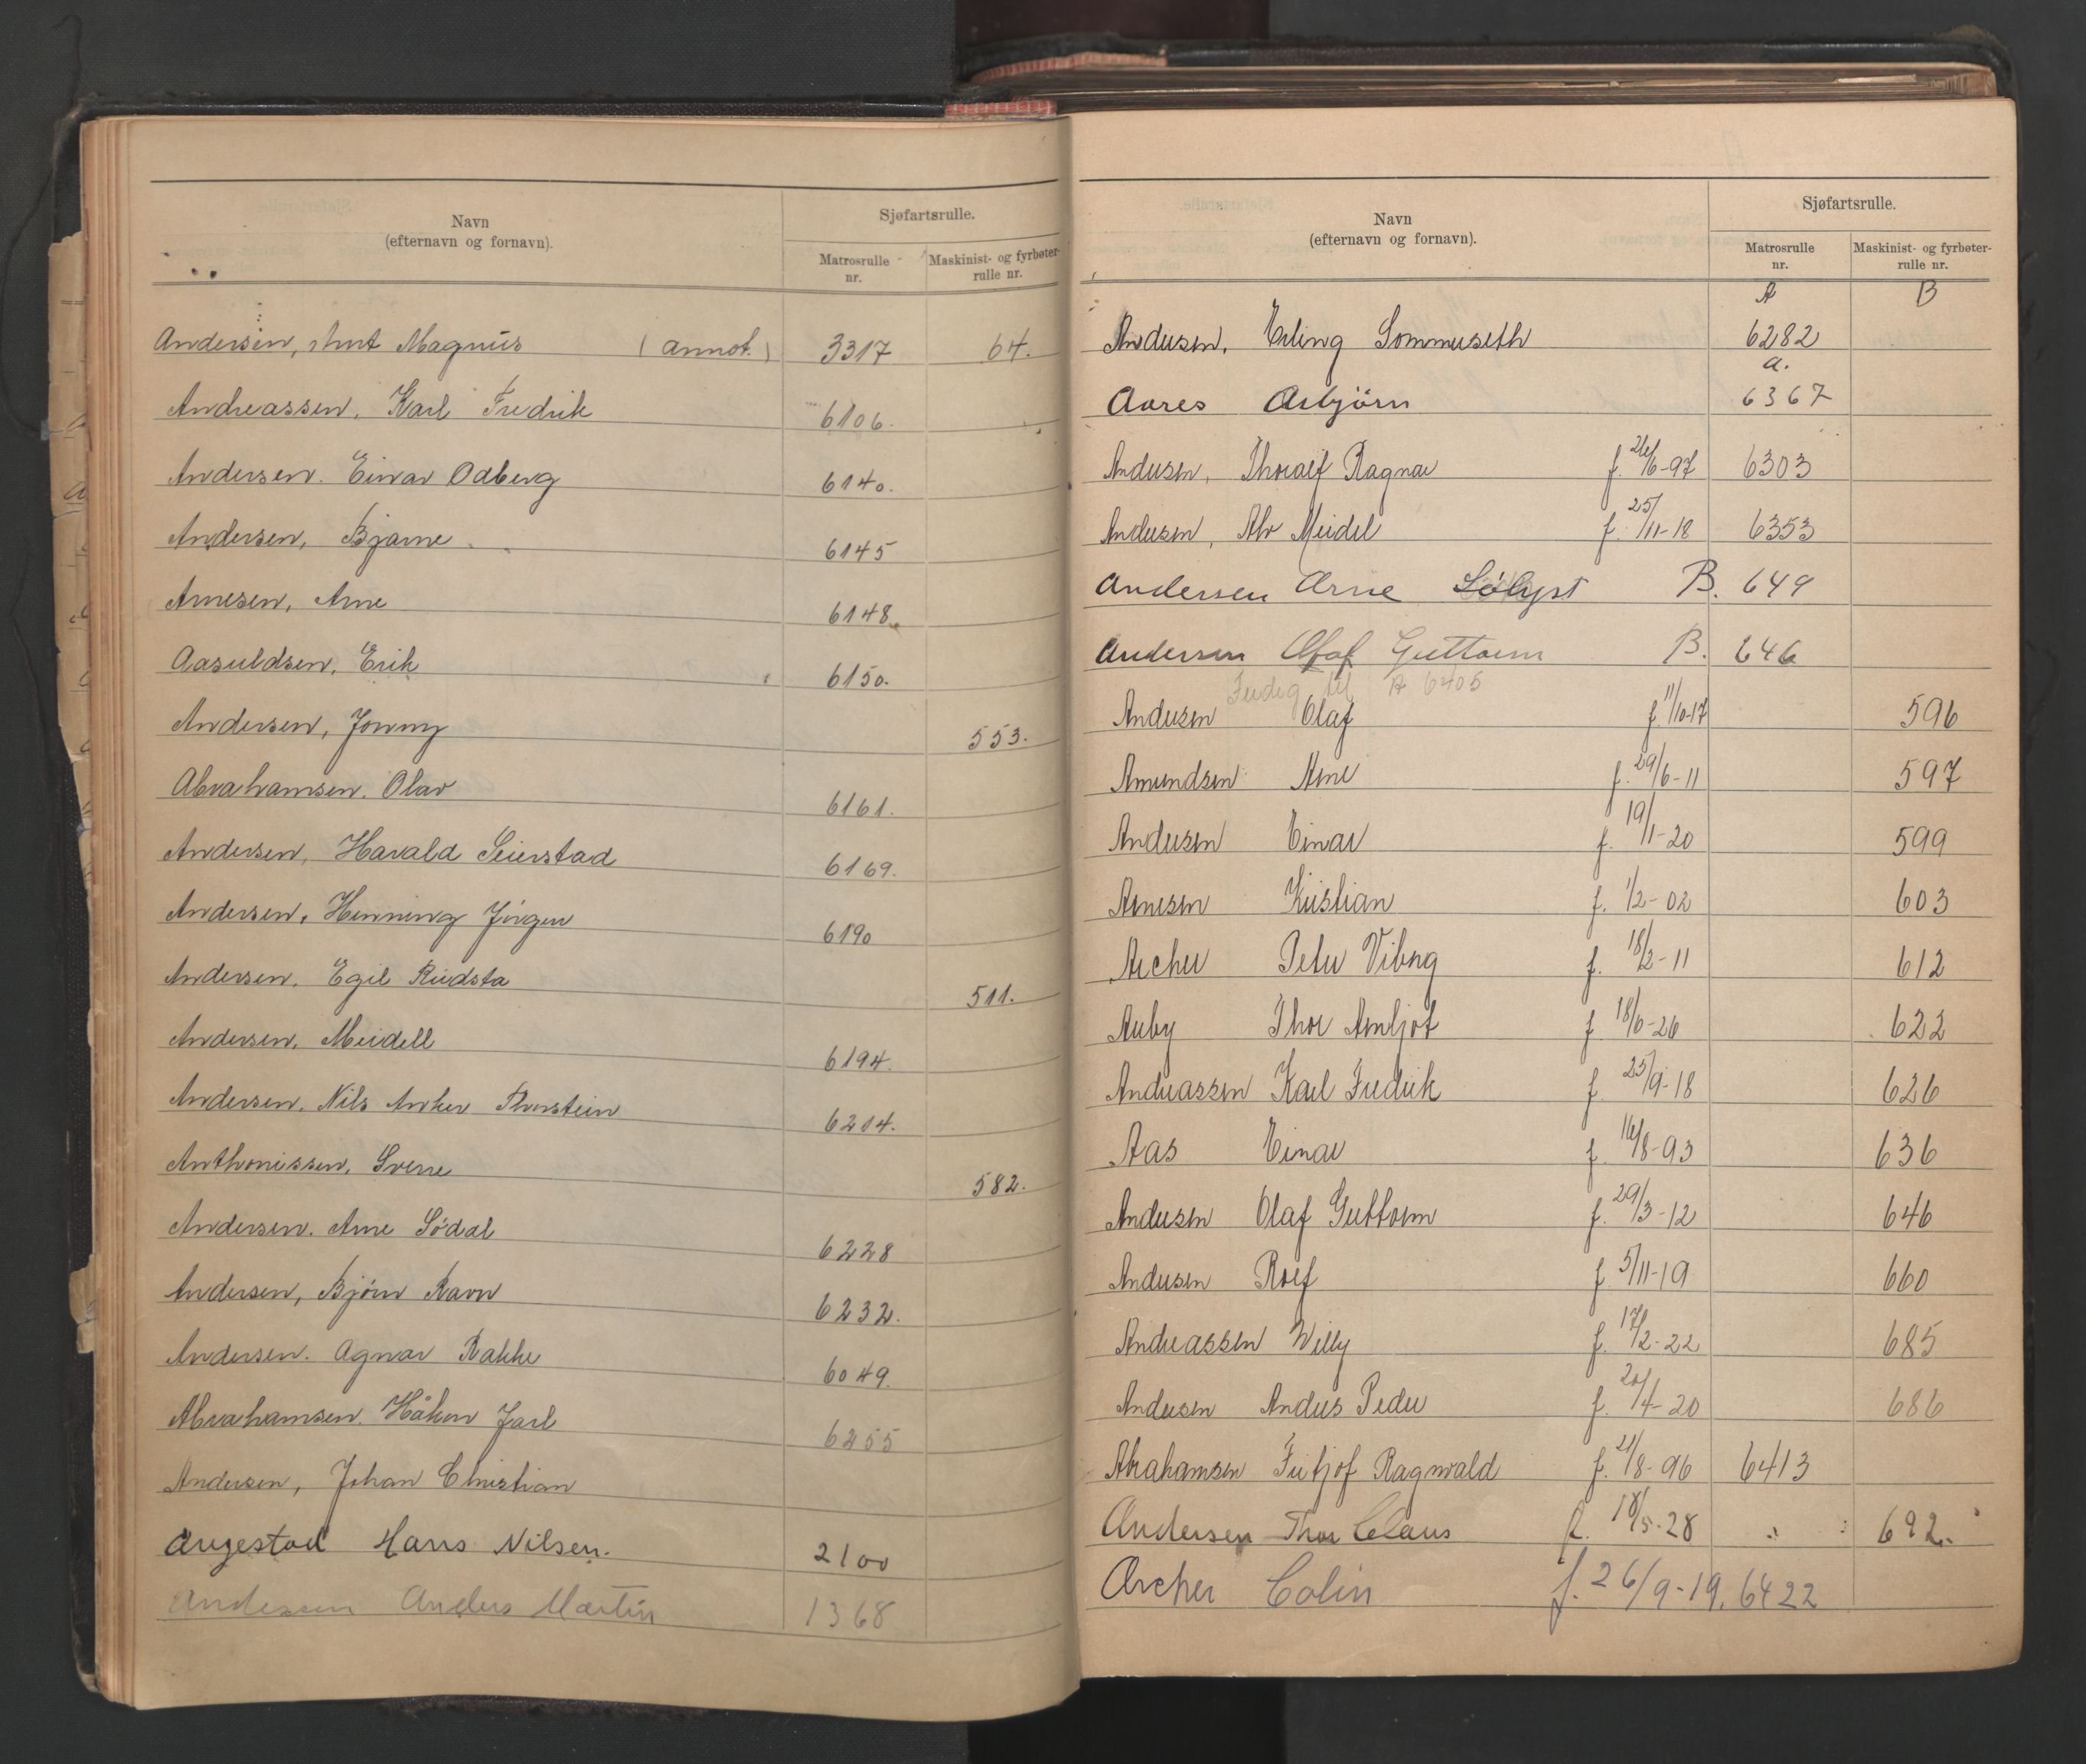 Navn
(efternavn og fornavn).
Sjøfartsrulle.
Matrosrulle nr.
Maskinist- og fyrbøter-rulle nr.
Andersen, Knut Magnus (annot.) 3317 64.
Andreassen, Karl Fredrik 6106.
Andersen. Einar Odberg 6140.
Andersen, Bjarne 6145
Arnesen, Arne 6148.
Aasuldsen, Erik 6150.
Andersen, Jonny 553.
Abrahamsen. Olav 6161.
Andersen, Harald Seierstad 6169.
Andersen, Henning Jörgen 6190
Andersen. Egil Rudsta 511.
Andersen, Meidell 6194.
Andersen. Nils Anker Thorstein 6214.
Anthonissen, Sverre 582.
Andersen. Arne Södal 6228
Andersen, Bjørn Ravn 6232.
Andersen. Agnar Bakke 6049.
Abrahamsen. Håkon Jarl 6255
Andersen, Johan Christian
Augestad Hans Nilsen. 2100
Andersen Anders Martin 1368
Navn
(efternavn og fornavn).
Sjøfartsrulle.
Matrosrulle nr.
Maskinist- og fyrbøter-rulle nr.
A B
Andersen, Erling Sommerseth 6282
a.
Aares Asbjörn 6367
Andersen, Thoralf Ragnar f. 26/6-97 6303
Andersen, Alv Meidel f. 25/11-18 6353
Andersen Arne Sølyst B. 649
Andersen Olaf Guttorm B. 646
Ferdig til A 6405
Andersen Olaf f. 11/10-17 596
Amundsen Arne f. 29/6-11 597
Andersen Einar f. 19/1-20 599
Arnesen Kristian f. 1/2-02 603
Archer Peter Viborg f. 18/2-11 612
Auby Thor Arnljot f 18/6-26 622
Andreassen Karl Fredrik f 25/9-18 626
Aas Einar f. 16/8-93 636
Andersen Olaf Guttorm f. 29/3-12 646
Andersen Rolf f. 5/11-19 660
Andreassen Willy f. 17/2-22 685
Andersen Anders Peder f. 20/4-20 686
Abrahamsen Fritjof Ragnvald f. 21/8-96 6413
Andersen Thor Claus f. 18/5-28 692.
Archer Colin f. 26/9-19. 6422